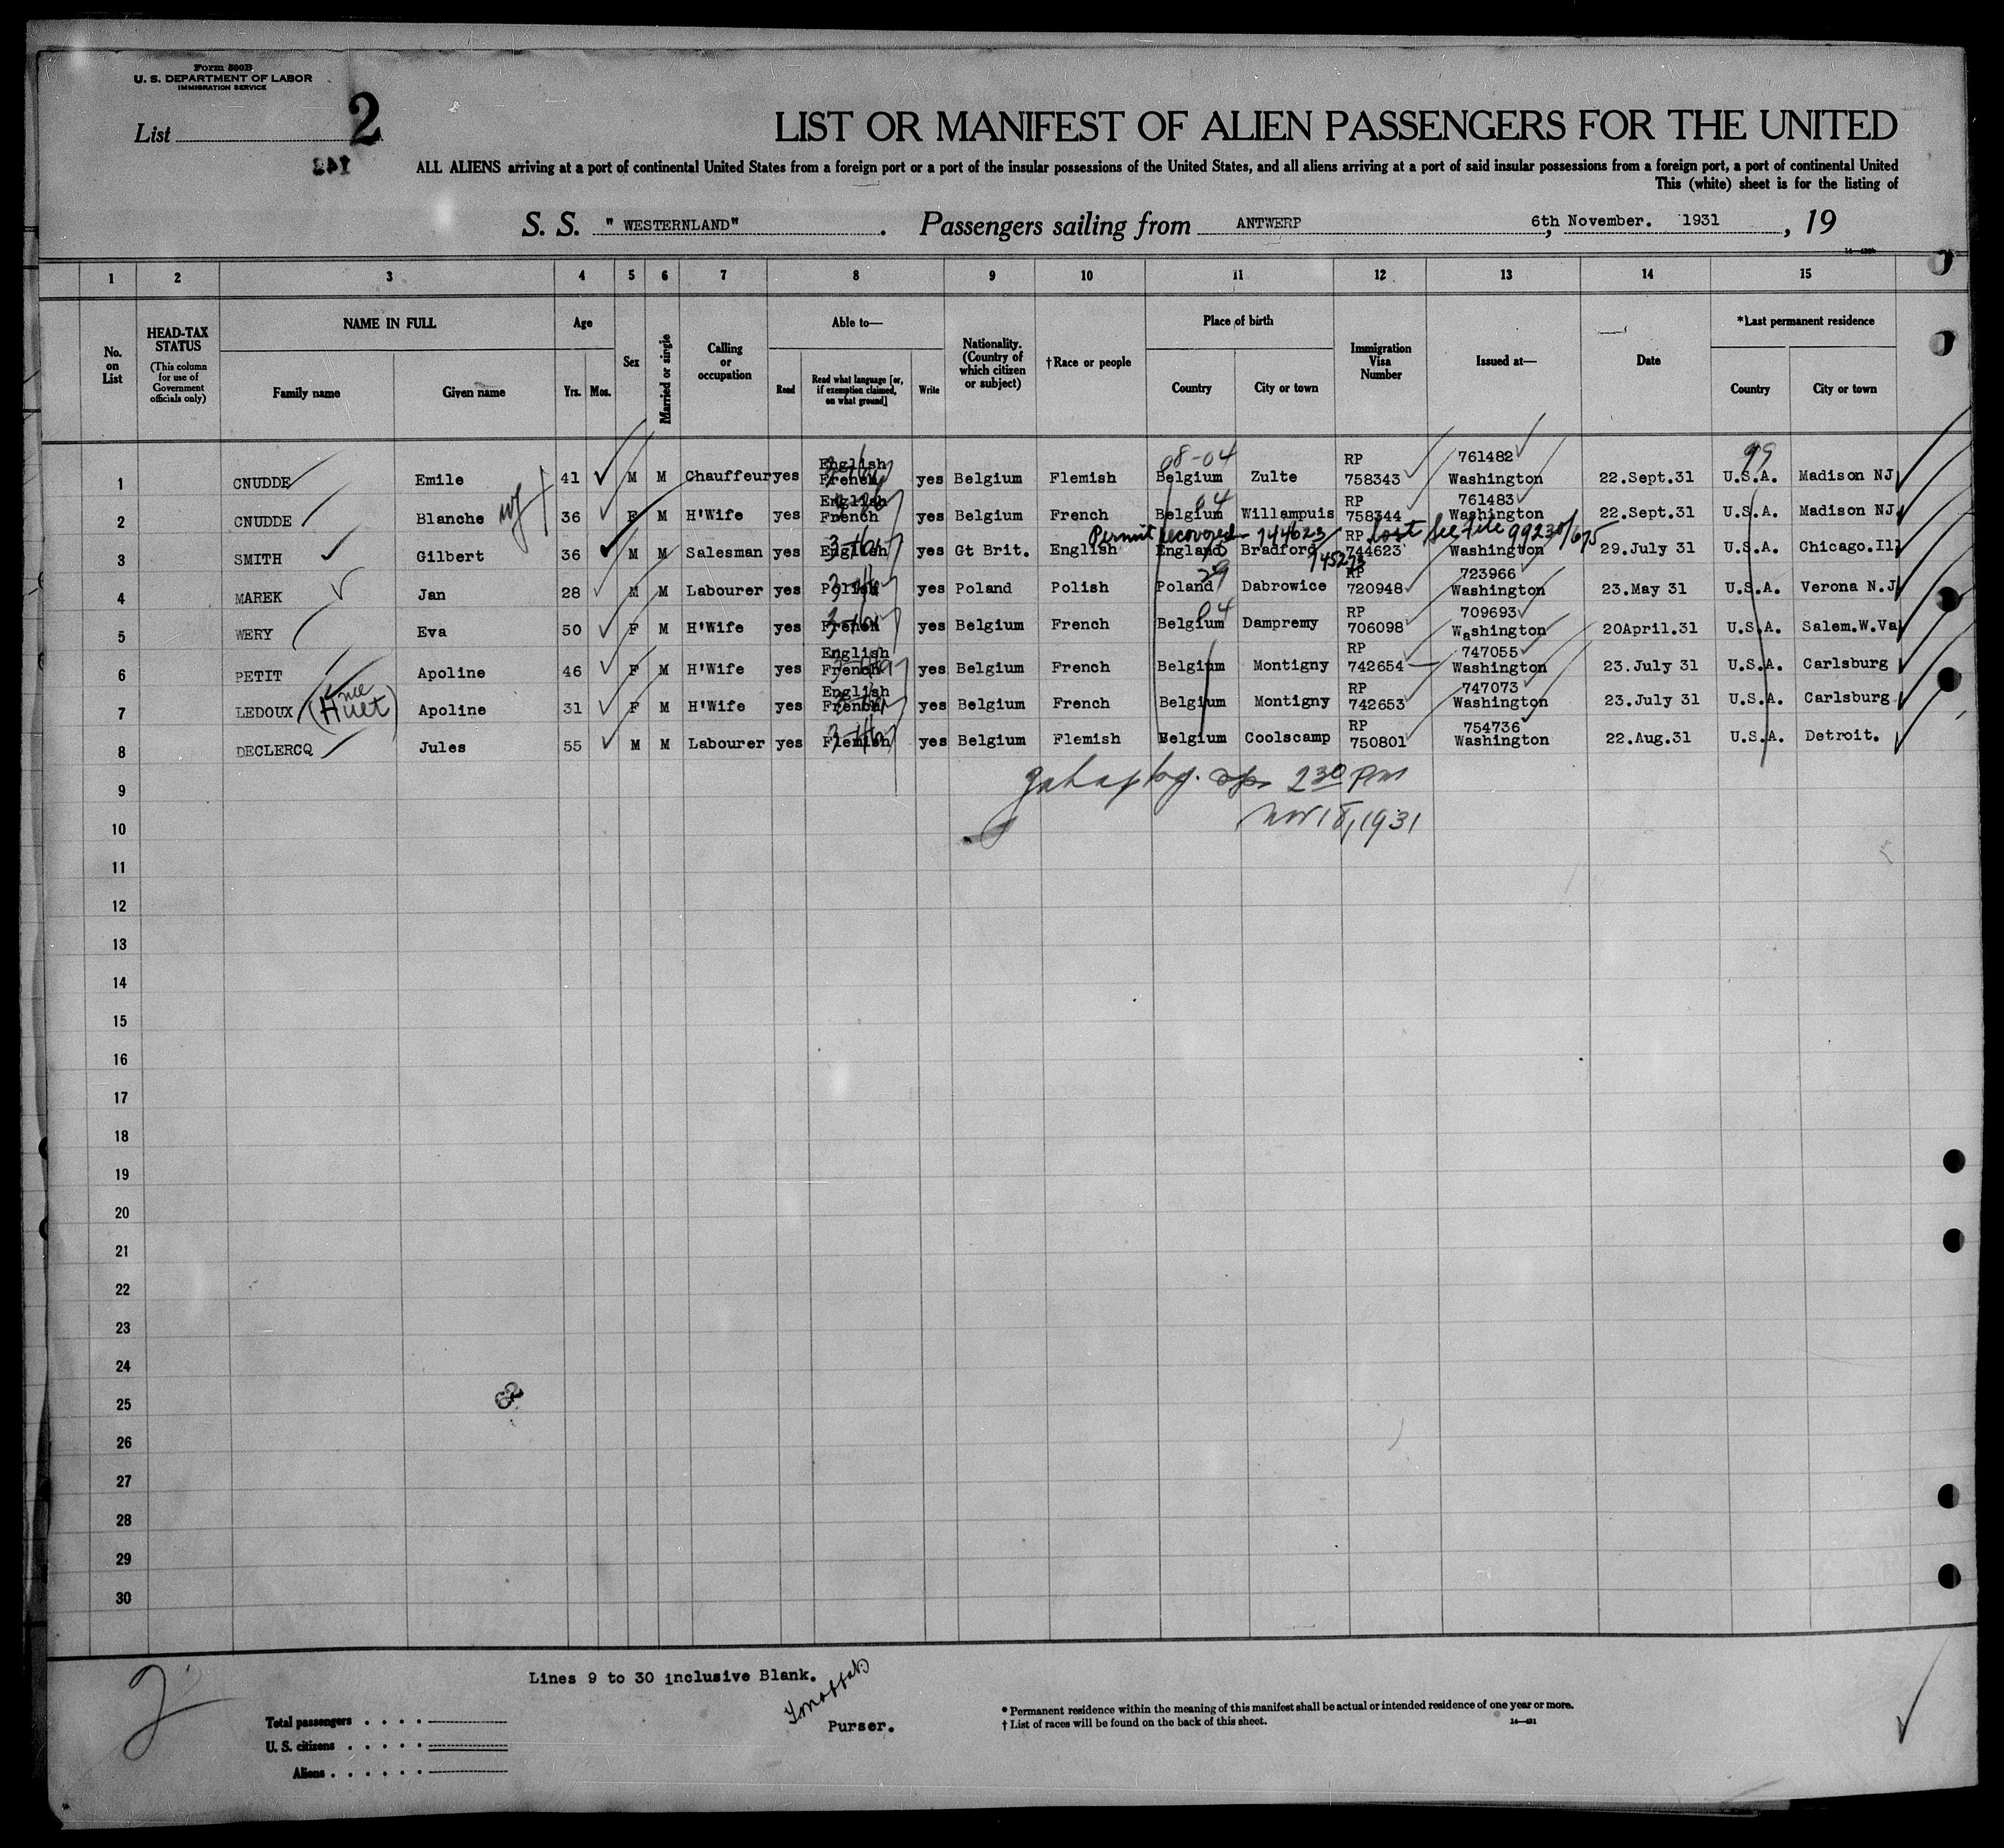 Form 500B
U. S. DEPARTMENT OF LABOR
IMMIGRATION SERVICE
List 2
LIST OR MANIFEST OF ALIEN PASSENGERS FOR THE UNITED
ALL ALIENS arriving at a port of continental United States from a foreign port or a port of the insular possessions of the United States, and all aliens arriving at a port of said insular possessions from a foreign port, a port of continental United
This (white) sheet is for the listing of
S. S. " WESTERNLAND" . Passengers sailing from ANTWERP 6th November. 1931 , 19
1 2 3 4 5 6 7 8 9 10 11 12 13 14 15
No. on List
HEAD-TAX STATUS (This column for use of Government officials only)
NAME IN FULL
Family name Given name
Age
Yrs. Mos.
Sex
Married or single
Calling or occupation
Able to—
Read Read what language [or, if exemption claimed, on what ground] Write
Nationality. (Country of which citizen or subject)
†Race or people
Place of birth
Country City or town
Immigration Visa Number
Issued at—
Date
*Last permanent residence
Country City or town
08-04 99
1 CNUDDE Emile 41 M M Chauffeur yes English French yes Belgium Flemish Belgium Zulte RP 758343 761482 Washington 22.Sept.31 U.S.A. Madison NJ
2 CNUDDE Blanche wf 36 F M H'Wife yes English French yes Belgium French Belgium 04 Willampuis RP 758344 761483 Washington 22.Sept.31 U.S.A. Madison NJ
Permit recovered 744623 lost See File 99230/675
3 SMITH Gilbert 36 M M Salesman yes English yes Gt Brit. English England Bradford RP 744623 Washington 29.July 31 U.S.A. Chicago.Ill
4 MAREK Jan 28 M M Labourer yes Polish yes Poland Polish Poland 29 Dabrowice RP 720948 723966 Washington 23.May 31 U.S.A. Verona N.J
5 WERY Eva 50 F M H'Wife yes French yes Belgium French Belgium 04 Dampremy RP 706098 709693 Washington 20April.31 U.S.A. Salem.W.Va
6 PETIT Apoline 46 F M H'Wife yes English French yes Belgium French Belgium Montigny RP 742654 747055 Washington 23.July 31 U.S.A. Carlsburg
7 LEDOUX (née Huet) Apoline 31 F M H'Wife yes English French yes Belgium French Belgium Montigny RP 742653 747073 Washington 23.July 31 U.S.A. Carlsburg
8 DECLERCQ Jules 55 M M Labourer yes Flemish yes Belgium Flemish Belgium Coolscamp RP 750801 754736 Washington 22.Aug.31 U.S.A. Detroit.
9 2 30 PM
10 Nov 18, 1931
11
12
13
14
15
16
17
18
19
20
21
22
23
24
25
26
27
28
29
30
Lines 9 to 30 inclusive Blank.
Purser.
Total passengers . . . .
U. S. citizens . . . . .
Aliens . . . . . .
* Permanent residence within the meaning of this manifest shall be actual or intended residence of one year or more.
† List of races will be found on the back of this sheet.